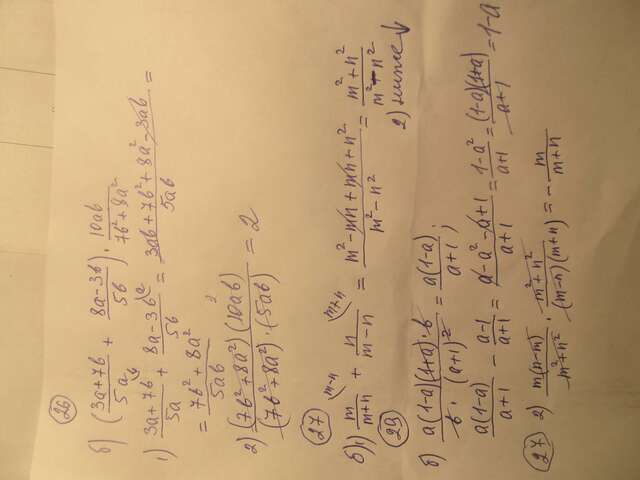 26
б) (3a+7b/5a + 8a-3b/5b) · 10ab/7b²+8a²
1) 3a+7b/5a + 8a-3b/5b = 3ab+7b²+8a²-3ab/5ab =
= 7b²+8a²/5ab
2) (7b²+8a²)(10ab)/(7b²+8a²)·(5ab) = 2
27
б) 1) m/m+n + n/m-n = m²-mn+mn+n²/m²-n² = m²+n²/m²-n²
2) ниже ↓
29
б) a(1-a)(1+a)·b/b·(a+1)² = a(1-a)/a+1;
a(1-a)/a+1 - a-1/a+1 = a-a²-a+1/a+1 = 1-a²/a+1 = (1-a)(1+a)/a+1 = 1-a
27 2) m(n-m)/m²+n² · m²+n²/(m-n)(m+n) = - m/m+n